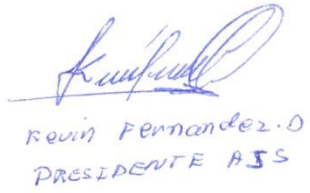 Kevin Fernandez.D
PRESIDENTE AJS